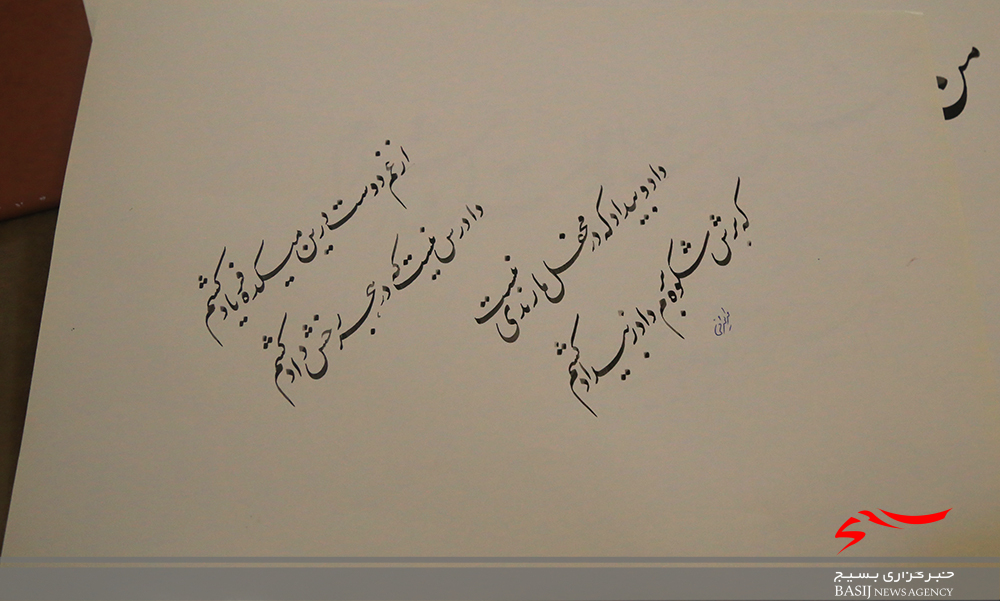 از غم دوست درین میکده فریاد کشم
دادرس نیست که در هجر رخش داد کشم
داد و بیداد که در محفل ما رندی نیست
که برش شکوه برم داد ز بیداد کشم
من
خبرگزاری بسیج
BASIJ NEWS AGENCY